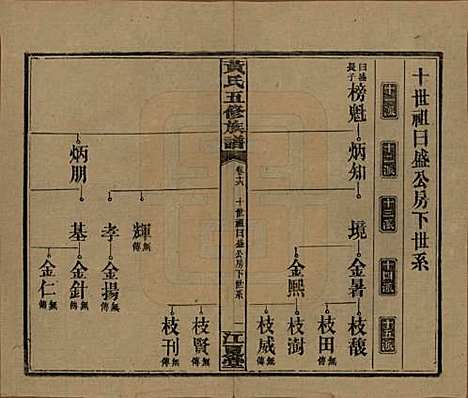 十世祖日盛公房下世系
十一派
十二派
十三派
十四派
十五派
日盛長子
榜魁
炳知
境
金暑
枝馥
枝田無傳
金熙
枝澍
枝威無傳
黃氏五修族譜
卷十六
十世祖日盛公房下世系
一
江夏堂
輝無傳
枝賢無傳
孝
金揚無傳
枝刊無傳
炳朋
基
金針無傳
金仁無傳